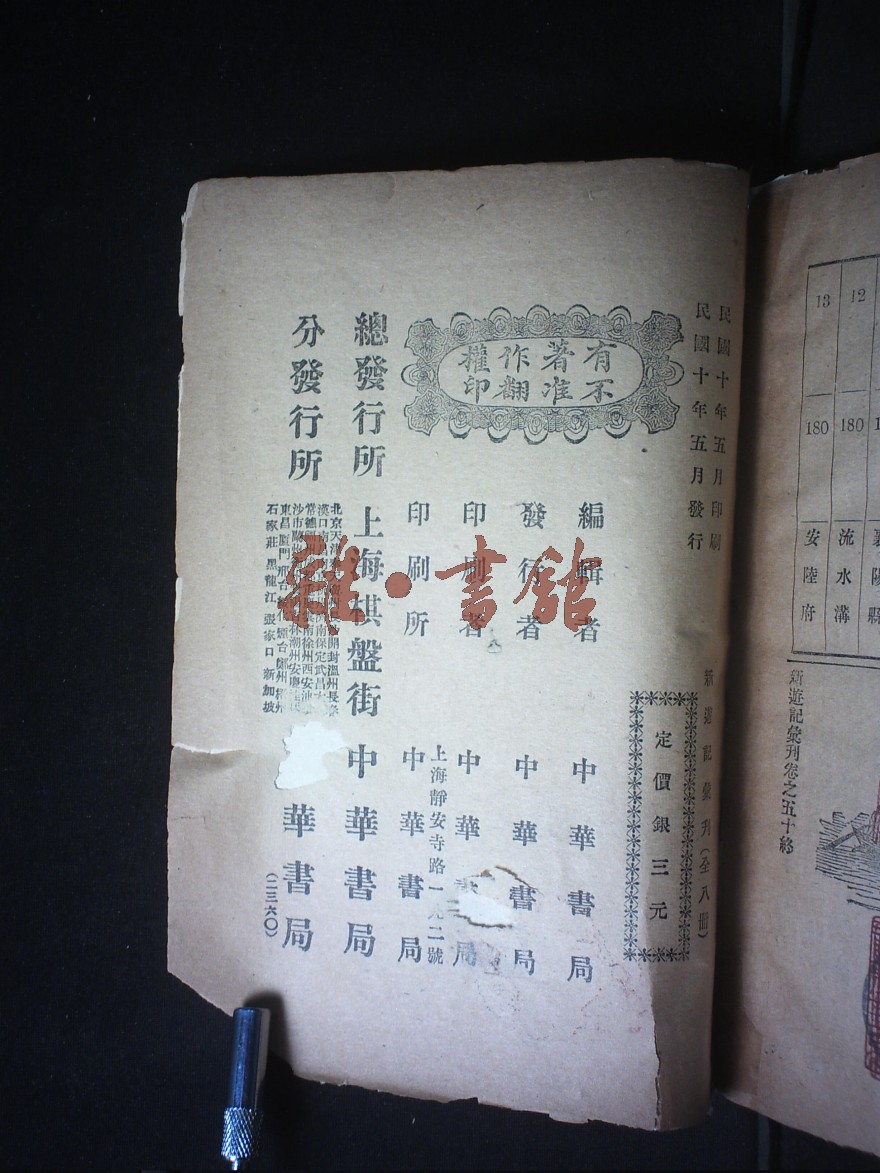 民國十年五月印刷
民國十年五月發行
新遊記彙刊(全八冊)
定價銀三元
有著作權
不准翻印
編輯者 中華書局
發行者 中華書局
印刷者 中華書局
上海靜安寺路一九二號
印刷所 中華書局
總發行所 上海棋盤街 中華書局
分發行所
北京天
開封溫州長
漢口南
濟南保定武昌
常德
南徐州西安
沙市
林潮州安慶
東昌廈門
煙台鄭州
石家莊 黑龍江 張家口 新加坡
華書局
(二三六〇)
雜·書館
12 180 流水溝
13 180 安陸府
襄陽縣
新遊記彙刊卷之五十終